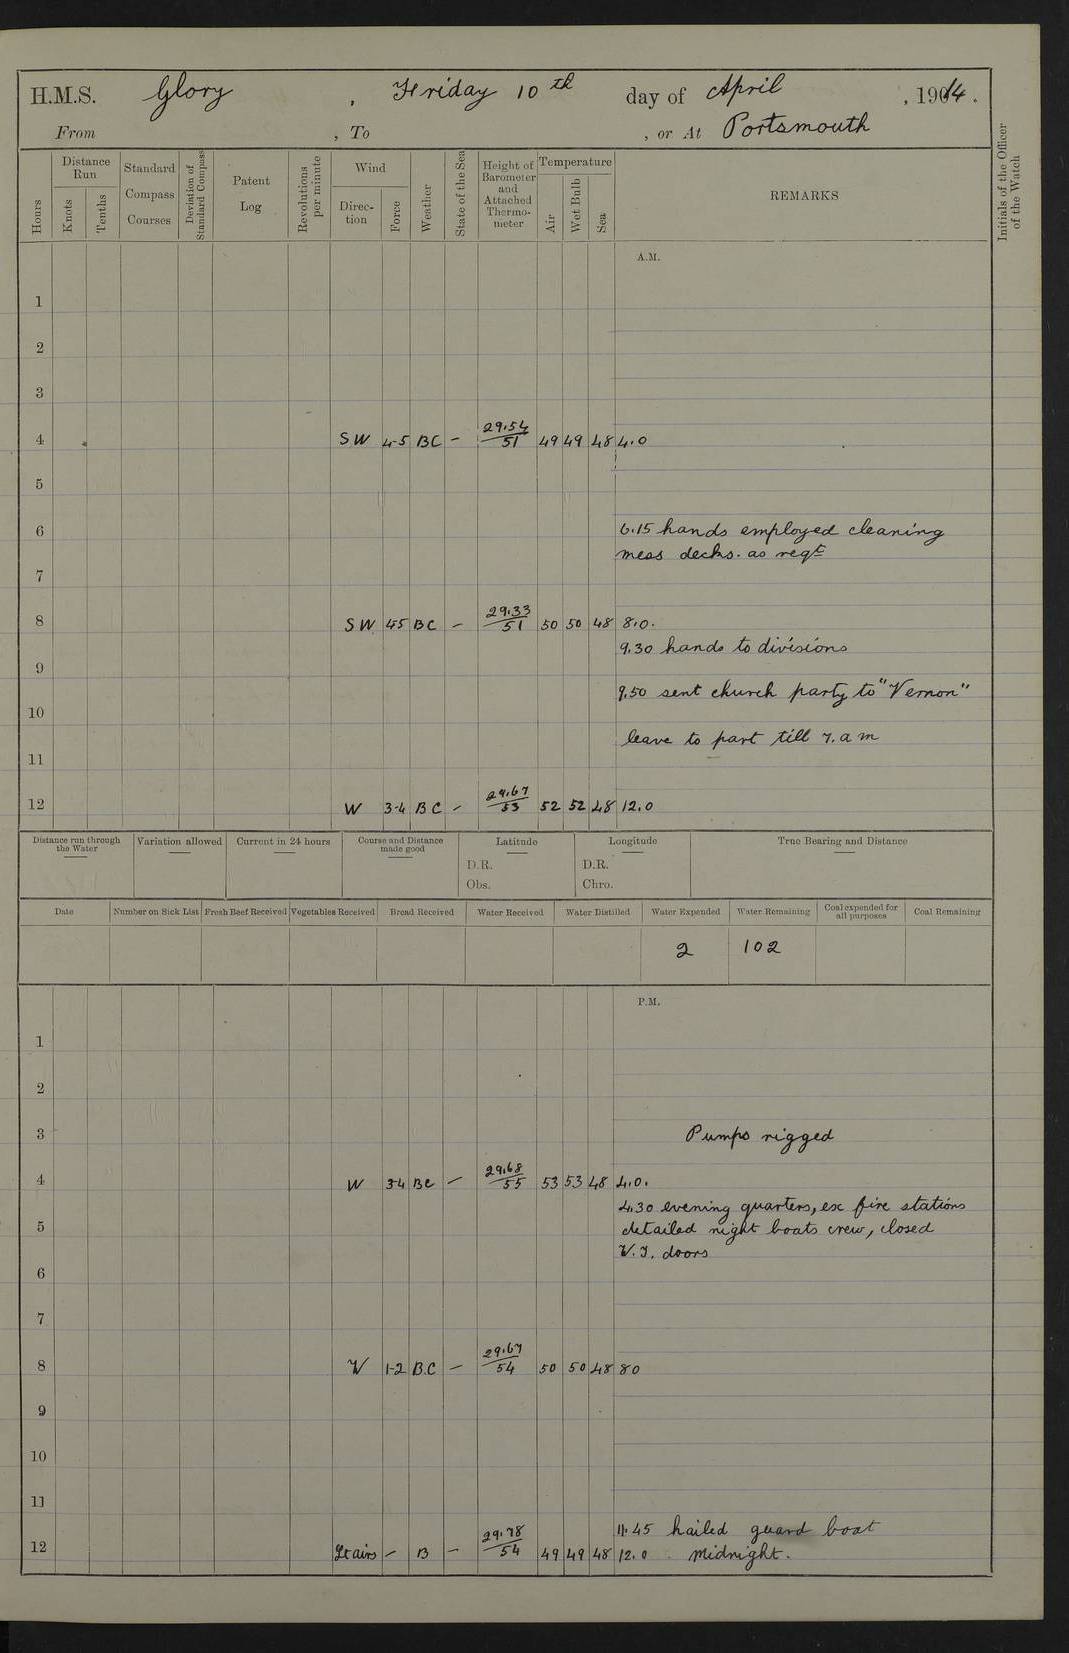 H.M.S. Glory, Friday 10th day of April, 1914.
From , To , or At Portsmouth
Hours
Distance Run
Knots
Tenths
Standard Compass Courses
Deviation of Standard Compass
Patent Log
Revolutions per minute
Wind
Direc-tion
Force
Weather
State of the Sea
Height of Barometer and Attached Thermo-meter
Temperature
Air
Wet Bulb
Sea
REMARKS
Initials of the Officer of the Watch
A.M.
1
2
3
4 SW 4-5 BC – 29.54/51 49 49 48 4.0
5
6 6.15 hands employed cleaning
mess decks. as reqd
7
8 SW 45 BC – 29.33/51 50 50 48 8.0.
9.30 hands to divisions
9
9.50 sent church party to "Vernon"
10
leave to part till 7. a m
11
12 W 3-4 BC – 29.67/53 52 52 48 12.0
Distance run through the Water
Variation allowed
Current in 24 hours
Course and Distance made good
Latitude
D.R.
Obs.
Longitude
D.R.
Chro.
True Bearing and Distance
Date
Number on Sick List
Fresh Beef Received
Vegetables Received
Bread Received
Water Received
Water Distilled
Water Expended
Water Remaining
Coal expended for all purposes
Coal Remaining
2 102
P.M.
1
2
3 Pumps rigged
4 W 34 BC – 29.68/55 53 53 48 4.0.
4.30 evening quarters, ex fire stations
5 detailed night boats crew, closed
W.T. doors
6
7
8 W 1-2 B.C – 29.67/54 50 50 48 80
9
10
11
11.45 hailed guard boat
12 Lt airs – B – 29.78/54 49 49 48 12.0 Midnight.